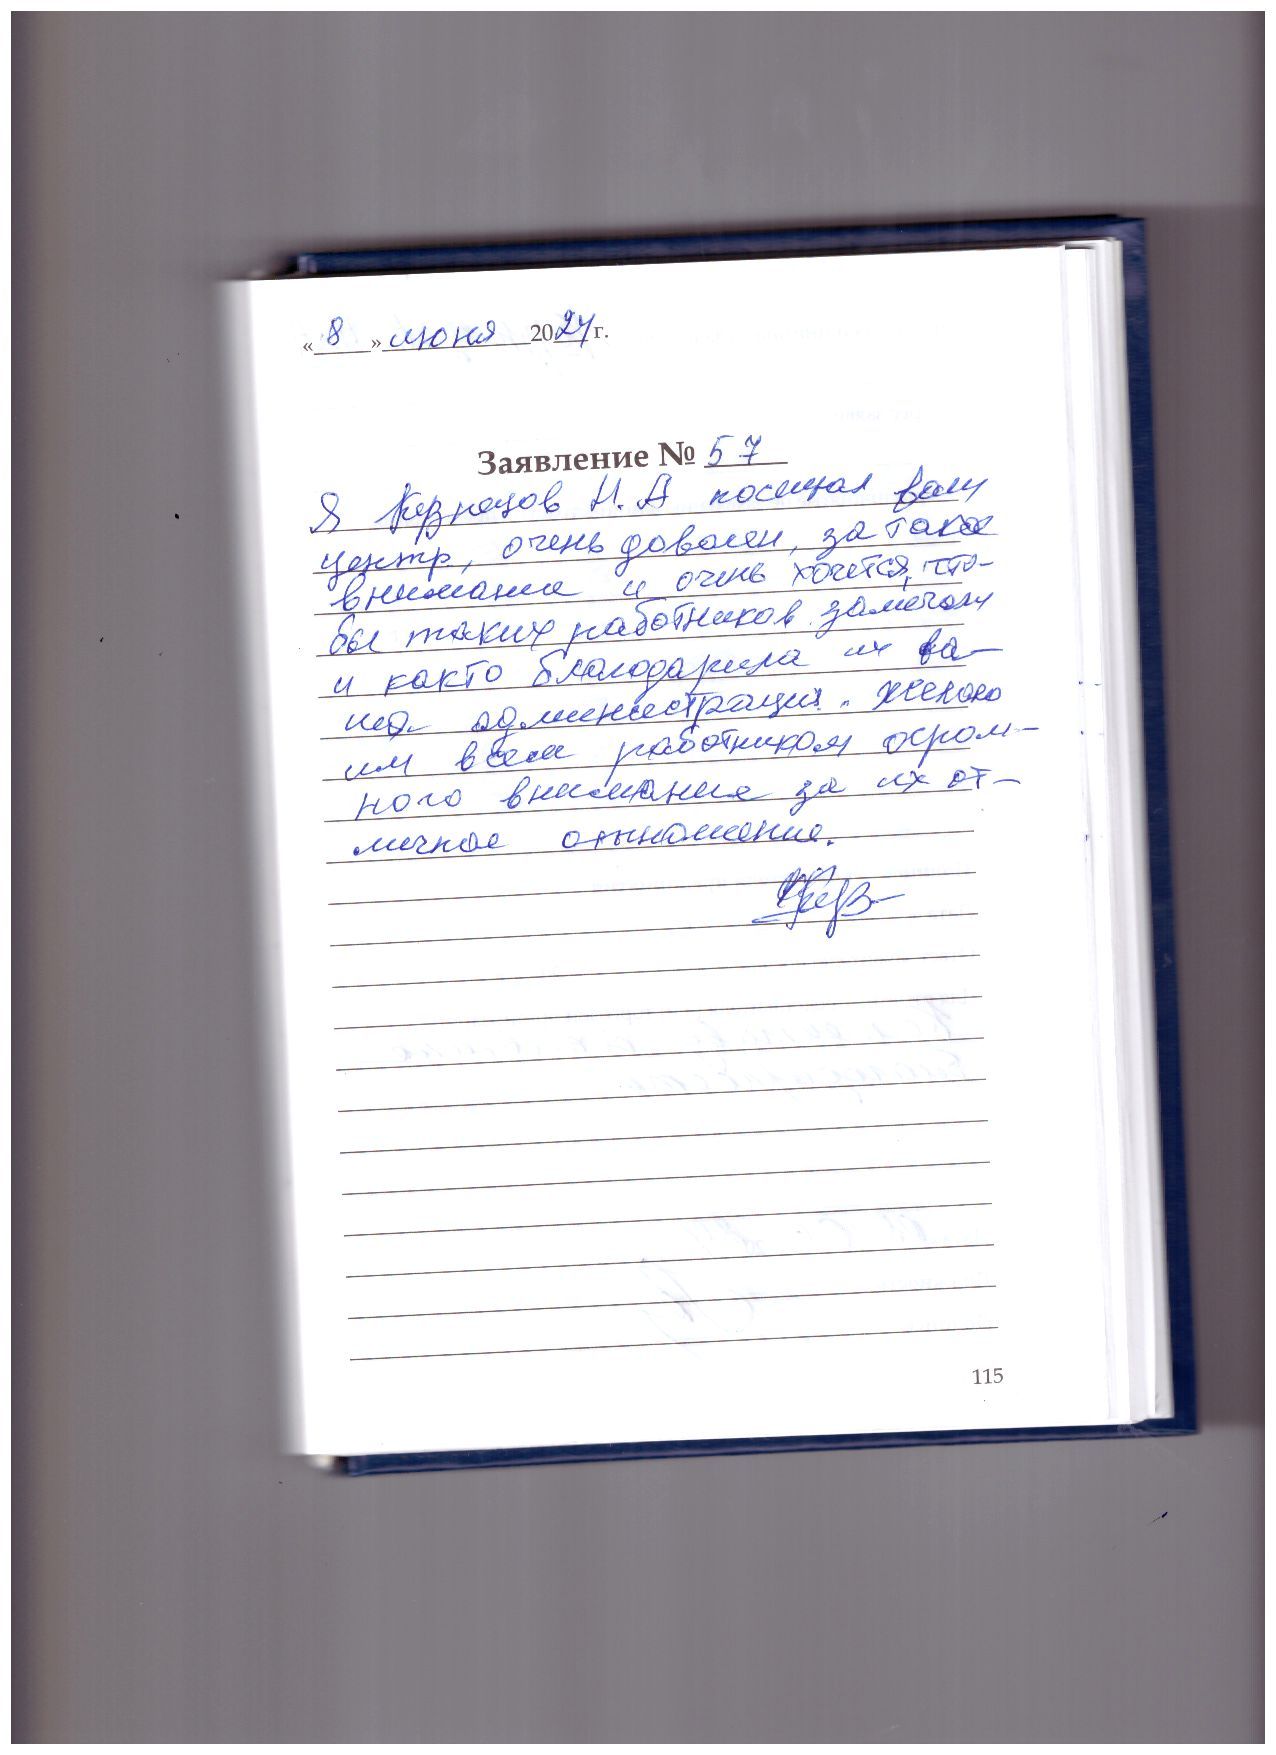 «8» июня 2024 г.
Заявление № 57
Я Кузнецов Н. А посещал ваш
центр, очень доволен, за такое
внимание и очень хочется, что-
бы таких работников замечали
и както благодарила их ва-
ша администрация. Желаю
им всем работникам огром-
ного внимания за их от-
личное отыношение.
115